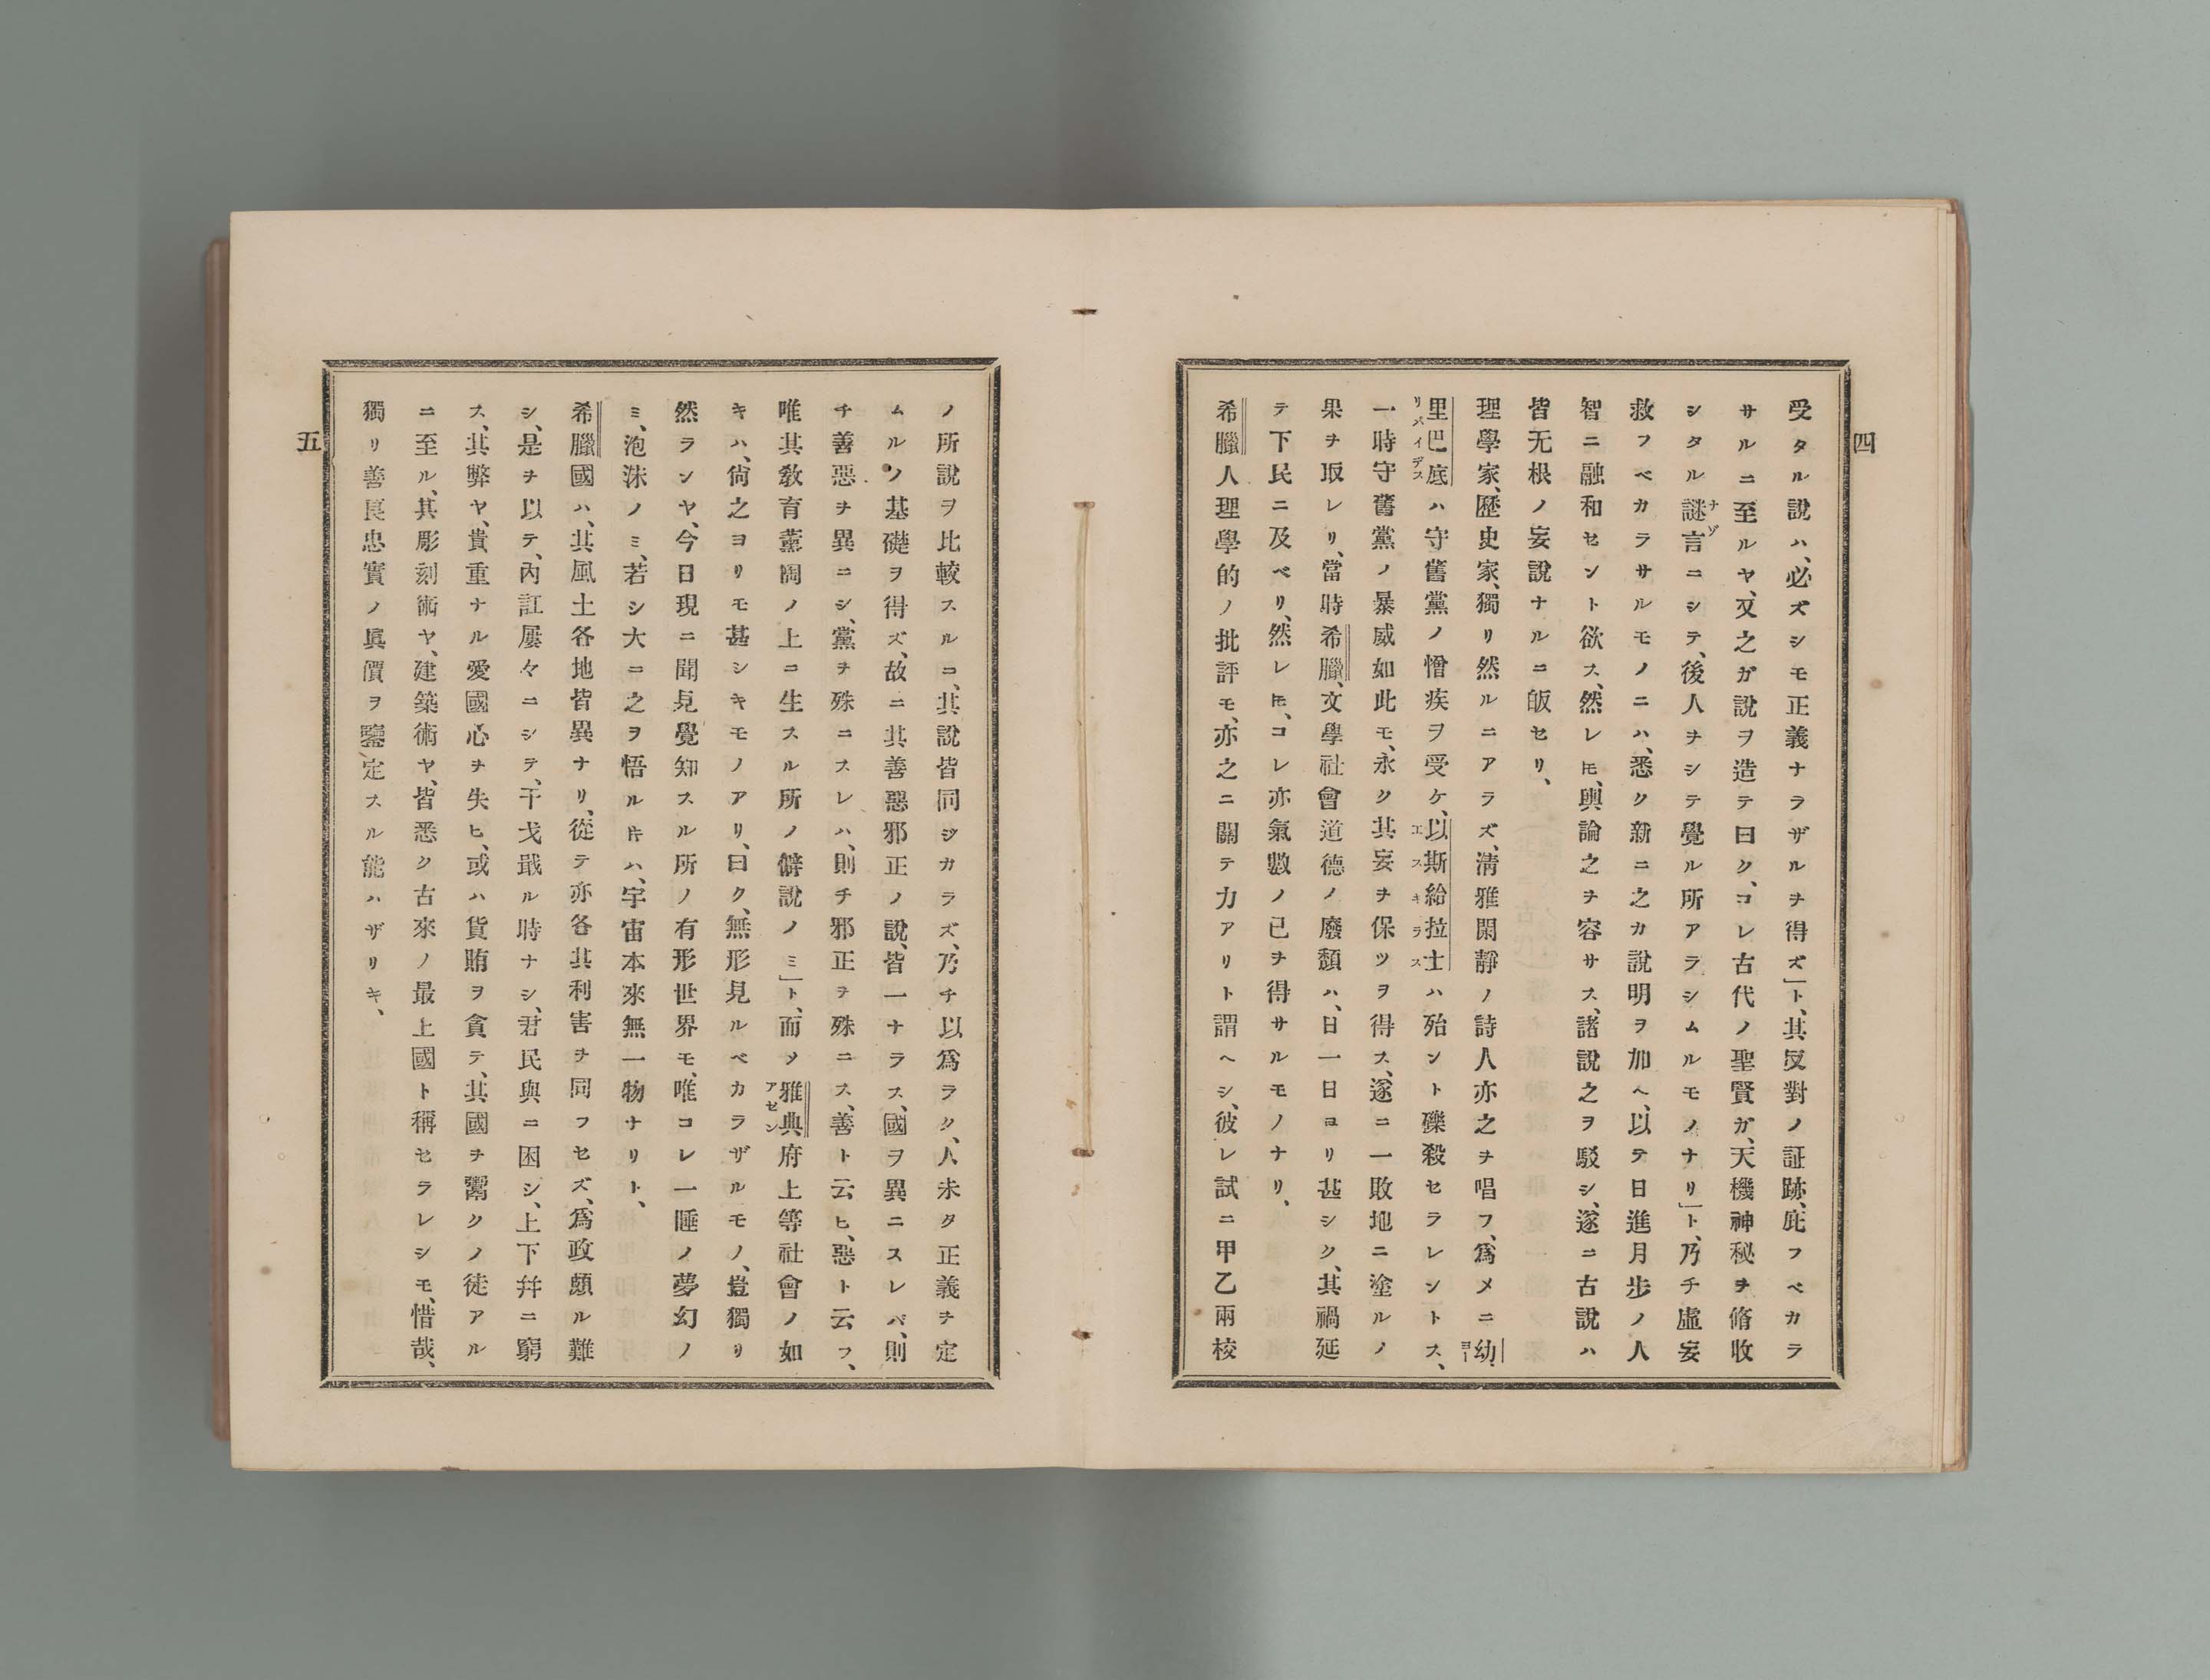 四
受タル說ハ、必ズシモ正義ナラザルヲ得ズ」ト、其反對ノ証跡、庇フベカラ
サルニ至ルヤ、又之ガ說ヲ造テ曰ク、コレ古代ノ聖賢ガ、天機神秘ヲ脩收
シタル謎言ニシテ、後人ヲシテ覺ル所アラシムルモノナリ」ト、乃チ虛妄
ナゾ
救フベカラサルモノニハ、悉ク新ニ之カ說明ヲ加ヘ、以テ日進月步ノ人
智ニ融和セント欲ス、然レ𪜈、輿論之ヲ容サス、諸說之ヲ駁シ、遂ニ古說ハ
皆无根ノ妄說ナルニ皈セリ、
理學家、歷史家、獨リ然ルニアラズ、淸雅閑靜ノ詩人亦之ヲ唱フ、爲メニ幼
ヨー
里巴底ハ守舊黨ノ憎疾ヲ受ケ、以斯給拉士ハ殆ント磔殺セラレントス、
リパイデス
エスキラス
一時守舊黨ノ暴威如此モ、永ク其妄ヲ保ツヲ得ス、遂ニ一敗地ニ塗ルノ
果ヲ取レリ、當時希臘、文學社會道德ノ廢頽ハ、日一日ヨリ甚シク、其禍延
テ下民ニ及ベリ、然レ𪜈、コレ亦氣數ノ已ヲ得サルモノナリ、
希臘人理學的ノ批評モ、亦之ニ關テ力アリト謂ヘシ、彼レ試ニ甲乙兩校
ノ所說ヲ比較スルコ、其說皆同ジカラズ、乃チ以爲ラク、人未タ正義ヲ定
ムルノ基礎ヲ得ズ、故ニ其善惡邪正ノ說、皆一ナラス、國ヲ異ニスレバ、則
チ善惡ヲ異ニシ、黨ヲ殊ニスレハ、則チ邪正ヲ殊ニス、善ト云ヒ、惡ト云フ、
唯其敎育薰陶ノ上ニ生スル所ノ僻說ノミ」ト、而〆雅典府上等社會ノ如
アゼン
キハ、尙之ヨリモ甚シキモノアリ、曰ク、無形見ルベカラザルモノ、豈獨リ
然ランヤ、今日現ニ聞見覺知スル所ノ有形世界モ、唯コレ一睡ノ夢幻ノ
ミ、泡沫ノミ、若シ大ニ之ヲ悟ル片ハ、宇宙本來無一物ナリト、
希臘國ハ、其風土各地皆異ナリ、從テ亦各其利害ヲ同フセズ、爲政頗ル難
シ、是ヲ以テ、內訌屢々ニシテ、干戈戢ル時ナシ、君民與ニ困シ、上下幷ニ窮
ス、其弊ヤ、貴重ナル愛國心ヲ失ヒ、或ハ貨賄ヲ貪テ、其國ヲ鬻クノ徒アル
ニ至ル、其彫刻術ヤ、建築術ヤ、皆悉ク古來ノ最上國ト稱セラレシモ、惜哉、
獨リ善良忠實ノ眞價ヲ鑒定スル能ハザリキ、
五